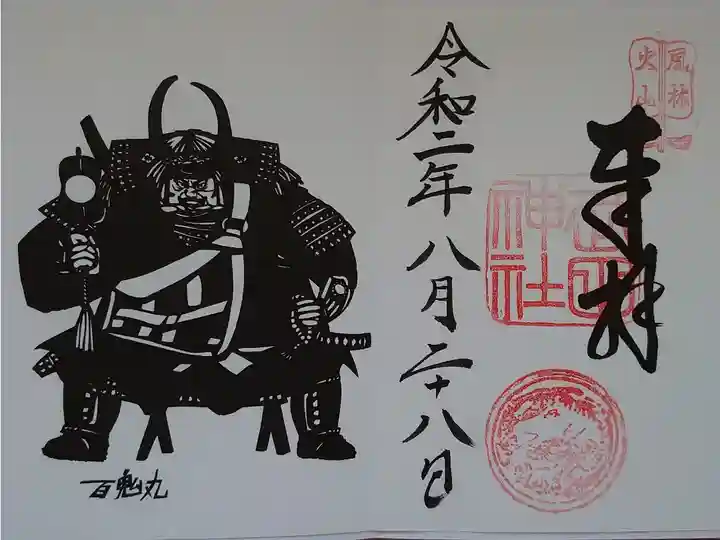 風林
火山
奉拝
武田
神社
令和二年八月二十八日
百鬼丸